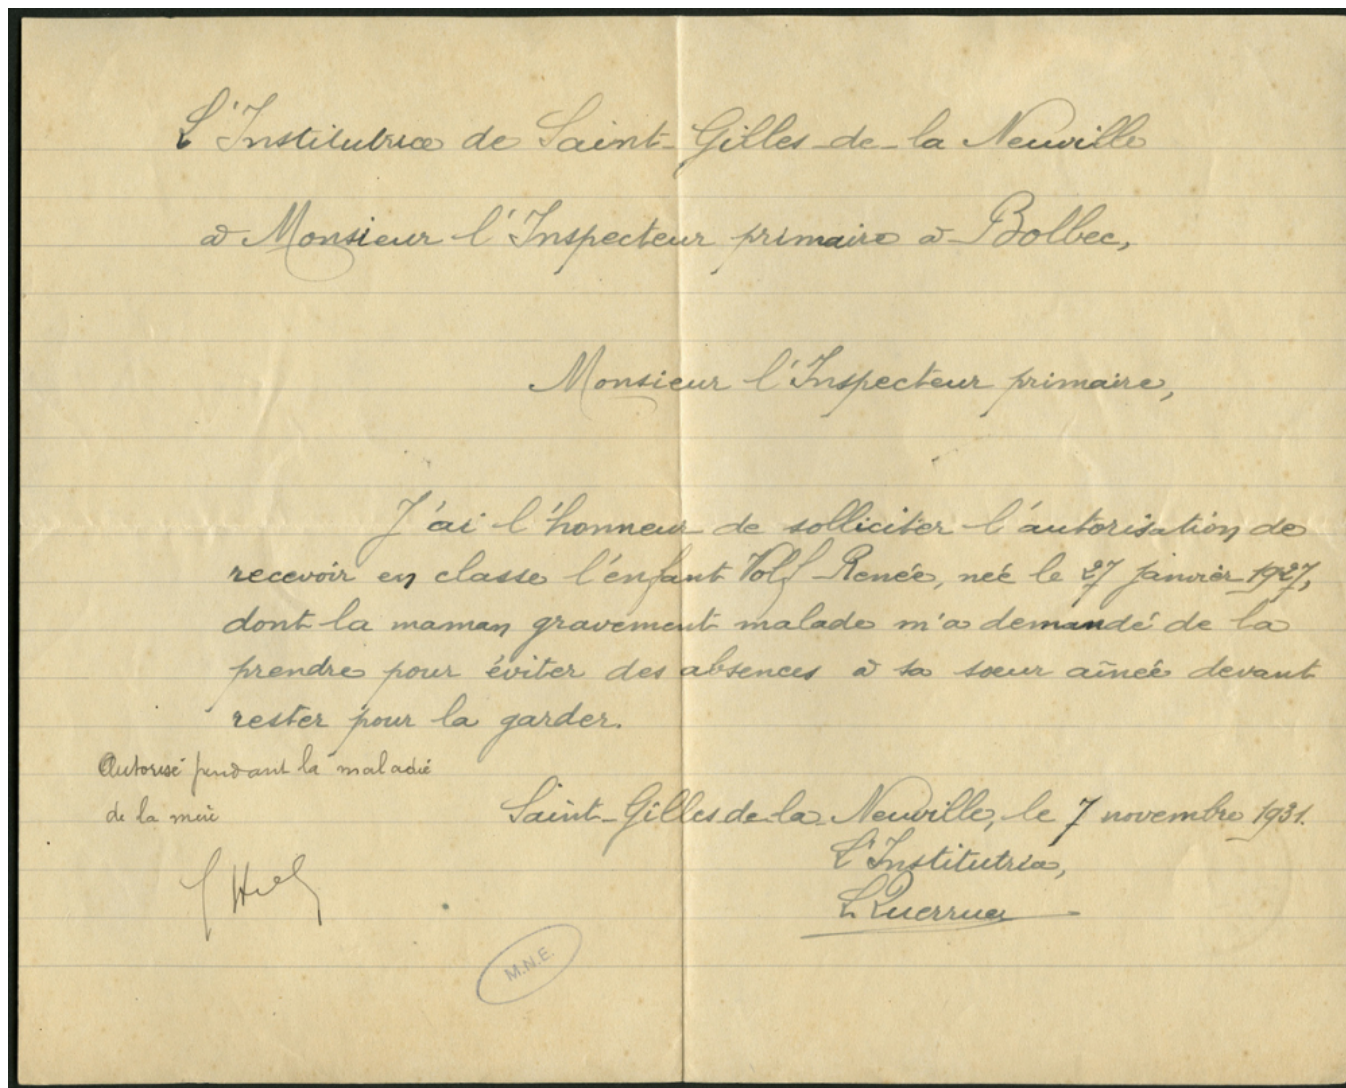 L'Institutrice de Saint-Gilles-de-la Neuville
à Monsieur l'Inspecteur primaire à Bolbec,
Monsieur l'Inspecteur primaire,
J'ai l'honneur de solliciter l'autorisation de
recevoir en classe l'enfant Volf Renée, née le 27 janvier 1927,
dont la maman gravement malade m'a demandé de la
prendre pour éviter des absences à sa sœur aînée devant
rester pour la garder.
Autorisé pendant la maladie
de la mère
Saint-Gilles de-la-Neuville, le 7 novembre 1931.
L'Institutrice,
M.N.E.